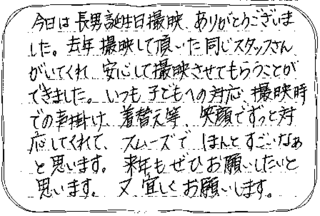 今日は長男誕生日撮映、ありがとうございま
した。去年撮映して頂いた同じスタッフさん
がいてくれ、安心して撮映させてもらうことが
できました。いつも子どもへの対応、撮映時
での声掛け、着替え等、笑顔でずっと対
応してくれて、スムーズでほんとすごいなぁ
と思います。来年もぜひお願いしたいと
思います。又宜しくお願いします。